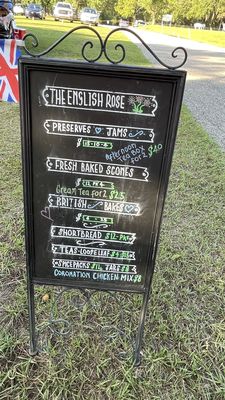 THE ENGLISH ROSE
PRESERVES JAMS
Afternoon
Tea Box
for 2
$40
FRESH BAKED SCONES
Cream Tea for 2 $25
BRITISH BAKES
SHORTBREAD $12-PKT
TEAS-LOOSE LEAF
SPICE PACKS $12 JARS $8
CORONATION CHICKEN MIX $8